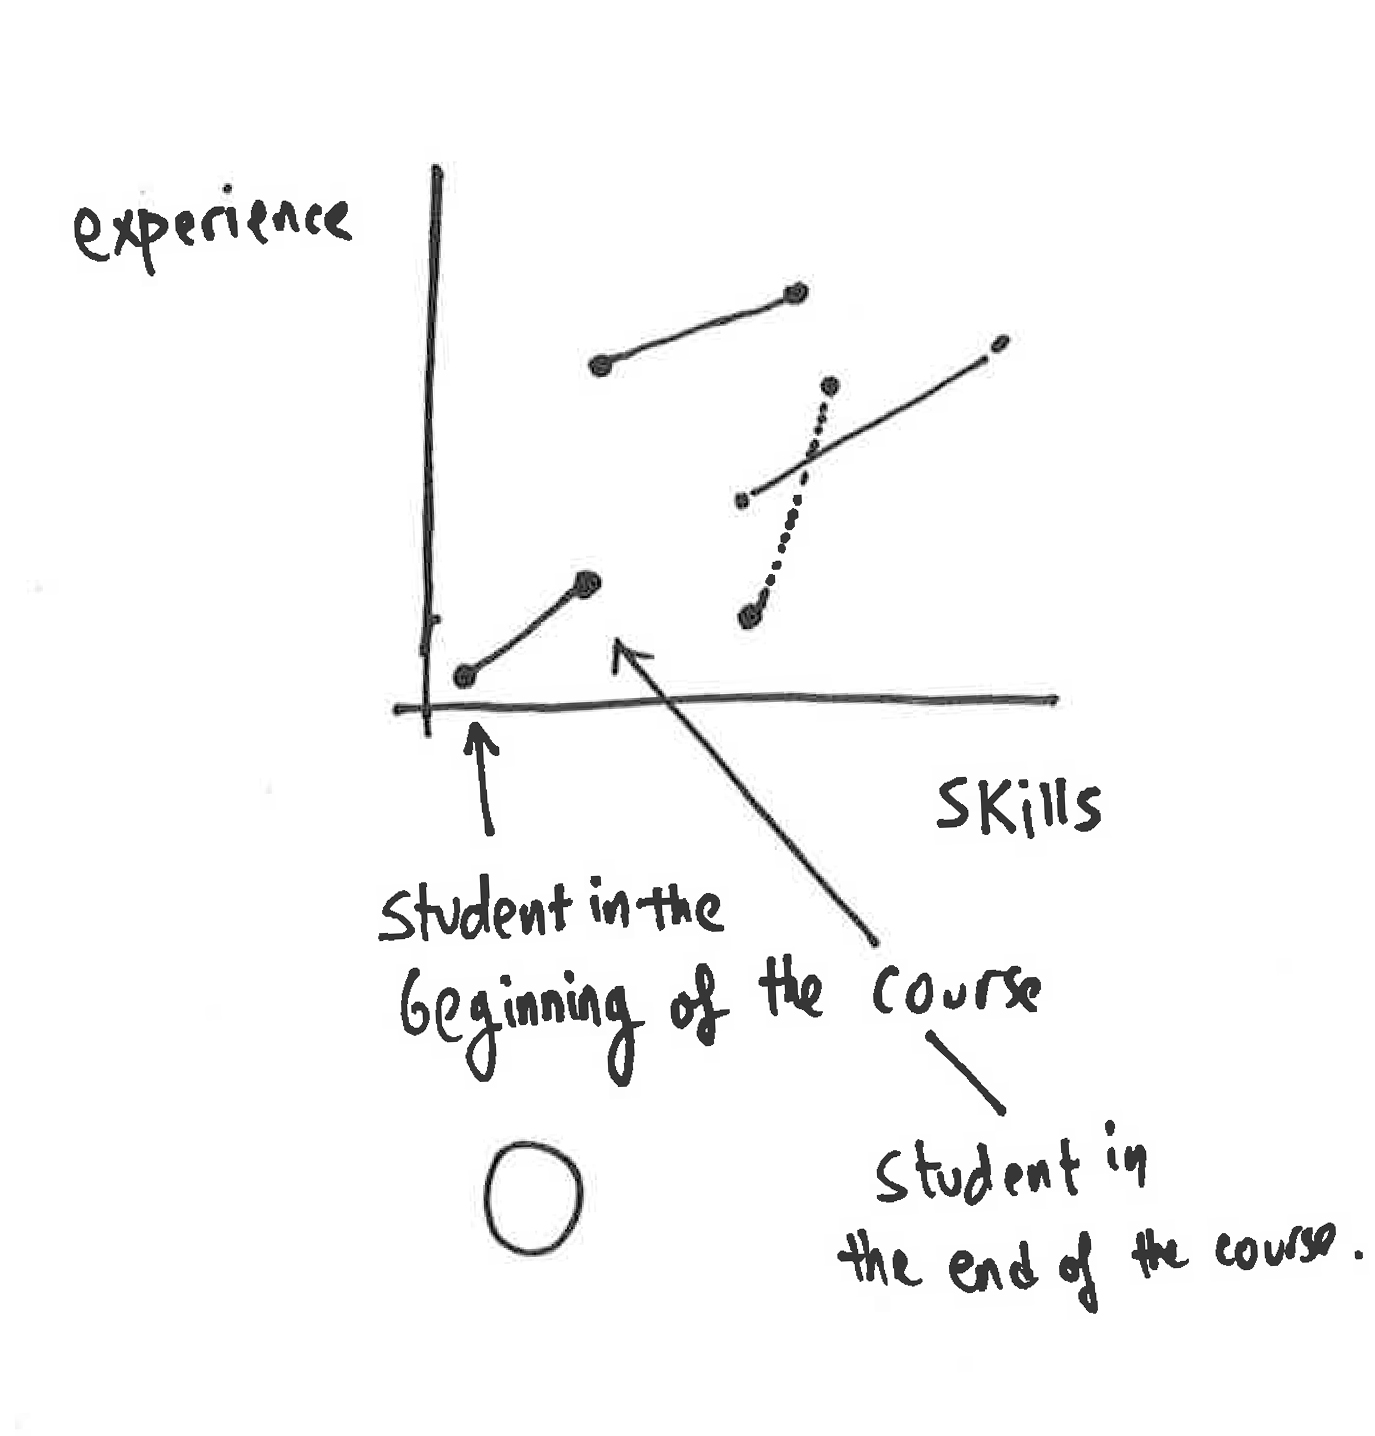 experience
SKills
Student in the
beginning of the course
Student in
the end of the course.